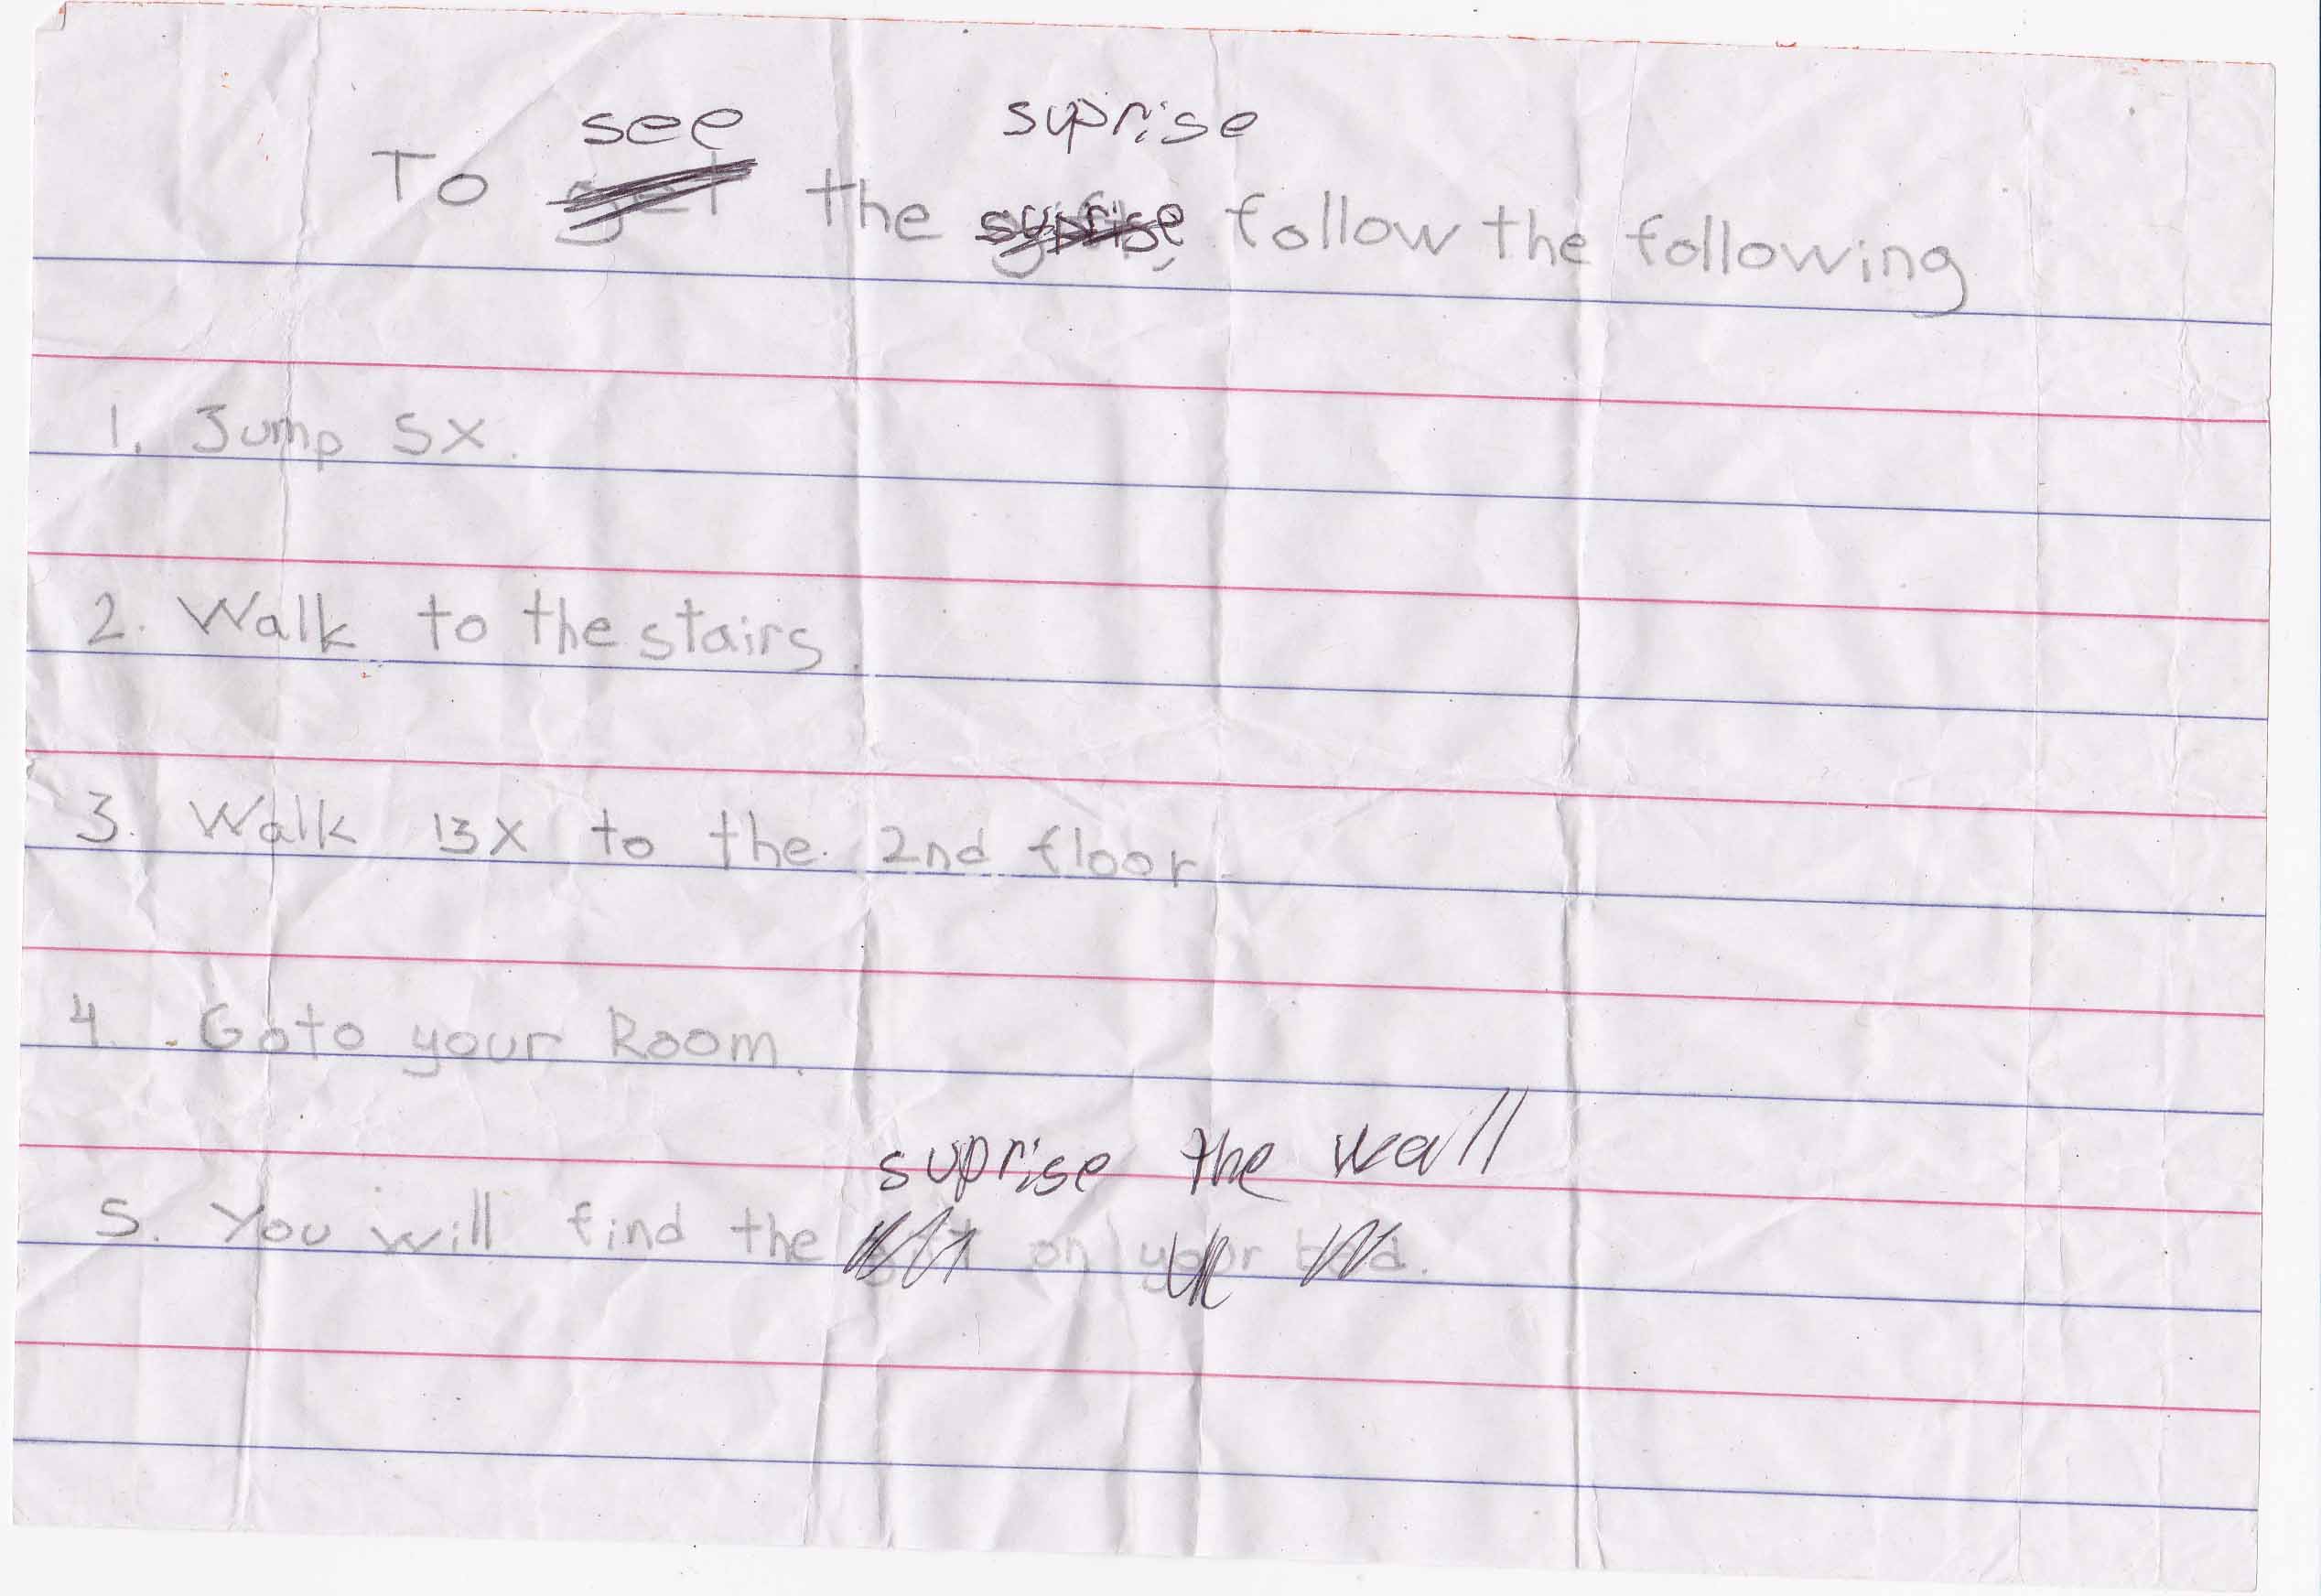 see suprise
To get the suprise follow the following
1. Jump 5X.
2. Walk to the stairs.
3. Walk 13X to the 2nd floor.
4. Goto your Room.
suprise the wall
5. You will find the gift on your bed.